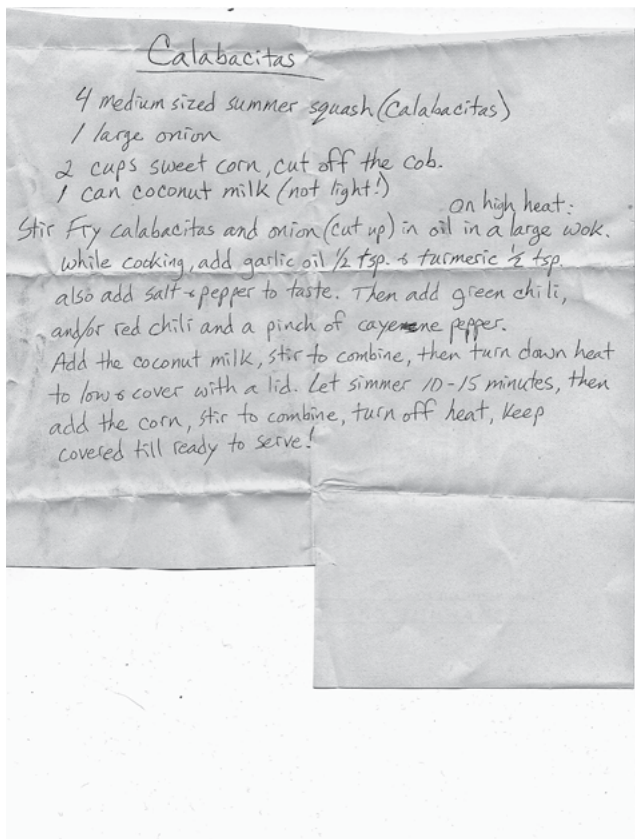 Calabacitas
4 medium sized summer squash (Calabacitas)
1 large onion
2 cups sweet corn, cut off the cob.
1 can coconut milk (not light!)
On high heat:
Stir Fry calabacitas and onion (cut up) in oil in a large wok.
while cooking, add garlic oil 1/2 tsp. & turmeric 1/2 tsp.
also add salt & pepper to taste. Then add green chili,
and/or red chili and a pinch of cayenne pepper.
Add the coconut milk, stir to combine, then turn down heat
to low & cover with a lid. Let simmer 10-15 minutes, then
add the corn, stir to combine, turn off heat, keep
covered till ready to serve!